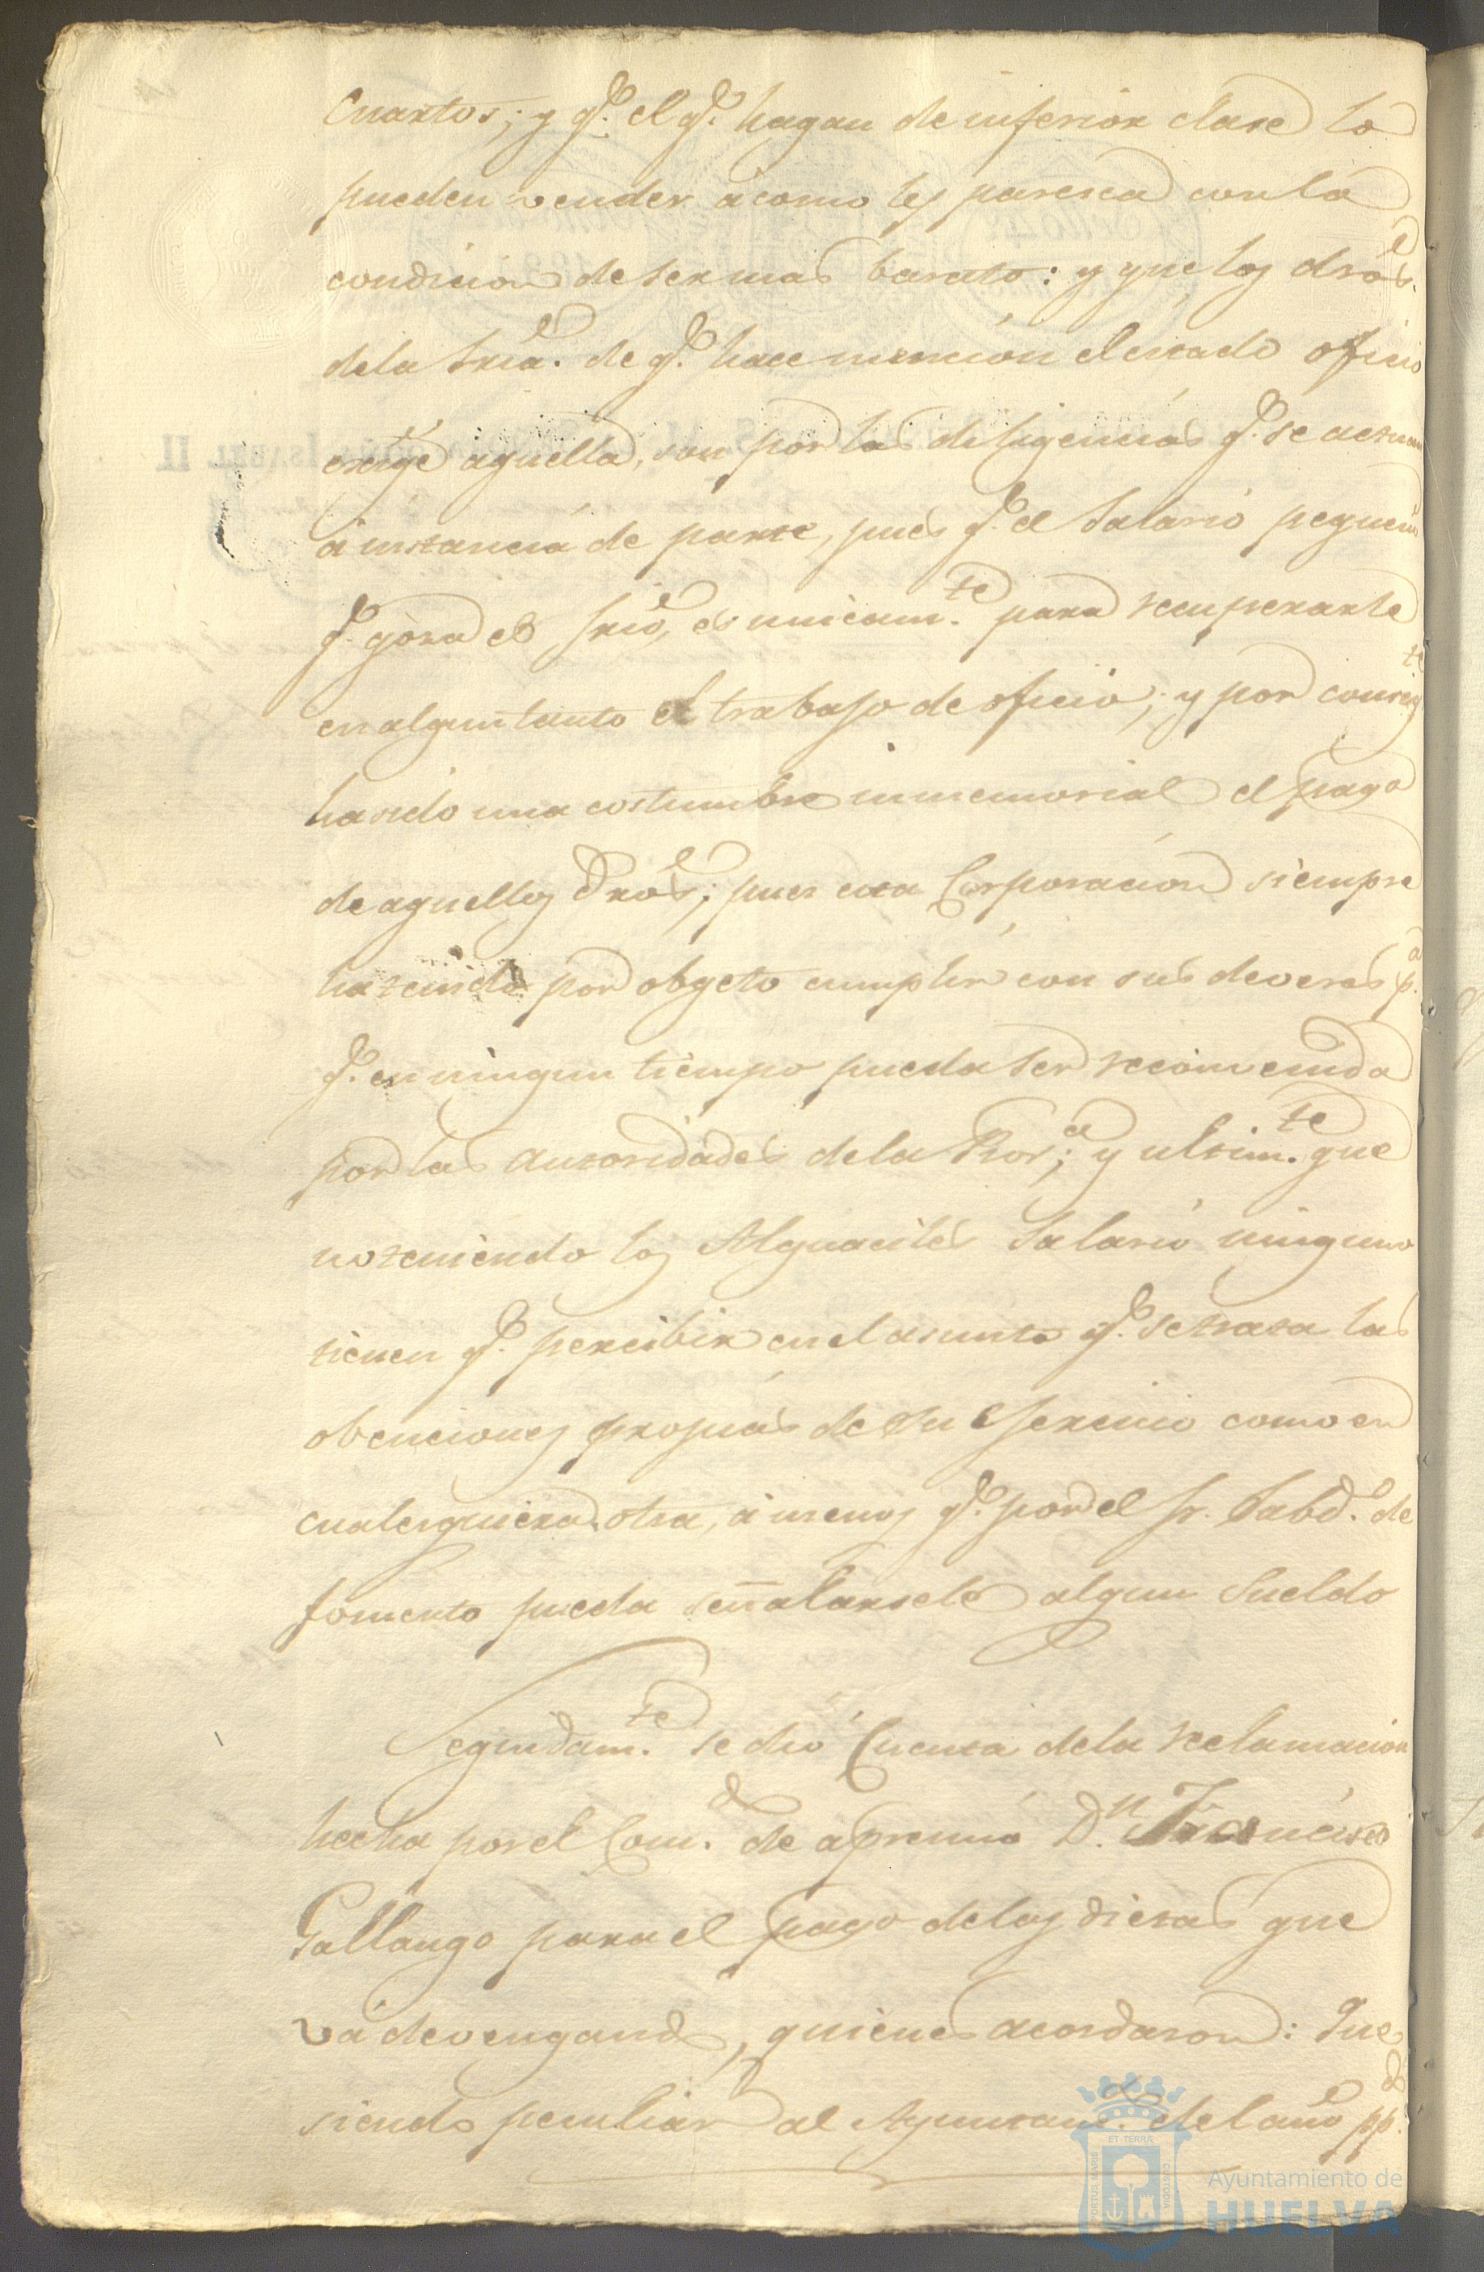 Cuartos; y q.e el q.e hagan de inferior clase lo
pueden vender á como les paresca con la
condicion de ser mas barato: y que los dros.
de la Sria. de q.e hace mencion el citado oficio
exige aquella, son por las diligencias q.e se actuan
á instancia de parte, pues q.e el Salario pequeño
q.e gosa el Srio, es unicam.te para recuperarle
en algun tanto el trabajo de oficio; y por consig.te
ha sido una costumbre inmemorial el pago
de aquellos dros; pues esta Corporacion siempre
ha tenido por obgeto cumplir con sus deveres p.a
q.e en ningun tiempo pueda ser reconvenida
por las autoridades de la Pror.a; y ultim.te que
no teniendo los Alguaciles Salario ninguno
tienen q.e percibir en el asunto q.e se trata las
obenciones propias de su egercicio como en
cualesquiera otra, á menos q.e por el Sr. Subd.o de
fomento pueda señalarsele algun Sueldo
Seguidam.te se dió Cuenta de la reclamacion
hecha por el Com.do de apremio D.n Francisco
Gallango para el pago de las dietas que
vá devengando, quienes acordaron: Que
siendo peculiar al Ayuntam.to del año pp.do
ET TERRÆ
PORTUS MARIS
CUSTODIA
Ayuntamiento de
HUELVA